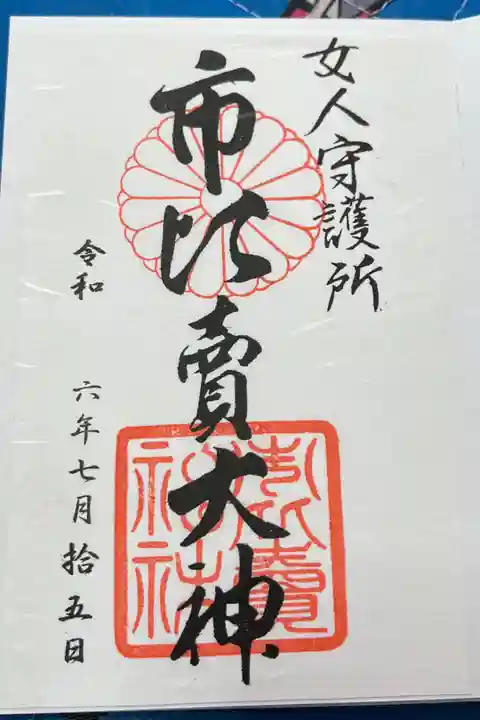 女人守護所
市比賣大神
令和 六年七月拾五日